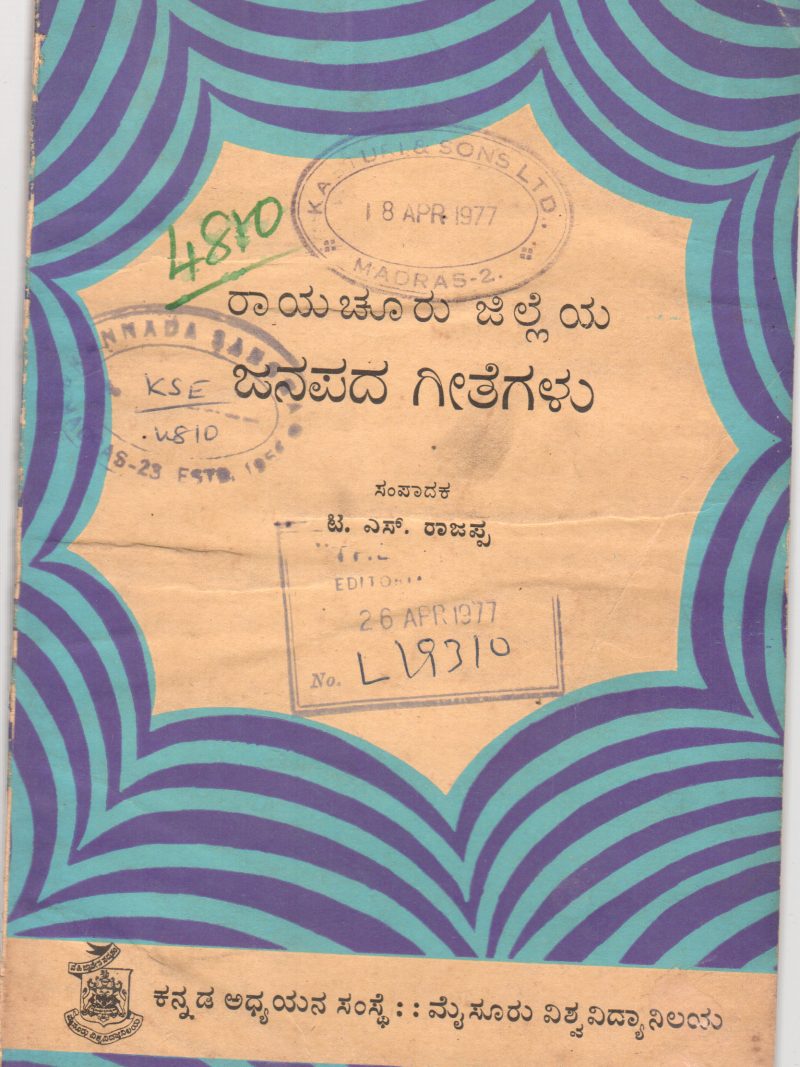 & SONS LTD.
18 APR 1977
MADRAS-2.
4810
ರಾಯಚೂರು ಜಿಲ್ಲೆಯ
ಜನಪದ ಗೀತೆಗಳು
KSE
4810
-23 ESTD. 1956
ಸಂಪಾದಕ
ಟಿ. ಎಸ್. ರಾಜಪ್ಪ
26 APR 1977
No.
ಕನ್ನಡ ಅಧ್ಯಯನ ಸಂಸ್ಥೆ :: ಮೈಸೂರು ವಿಶ್ವವಿದ್ಯಾನಿಲಯ